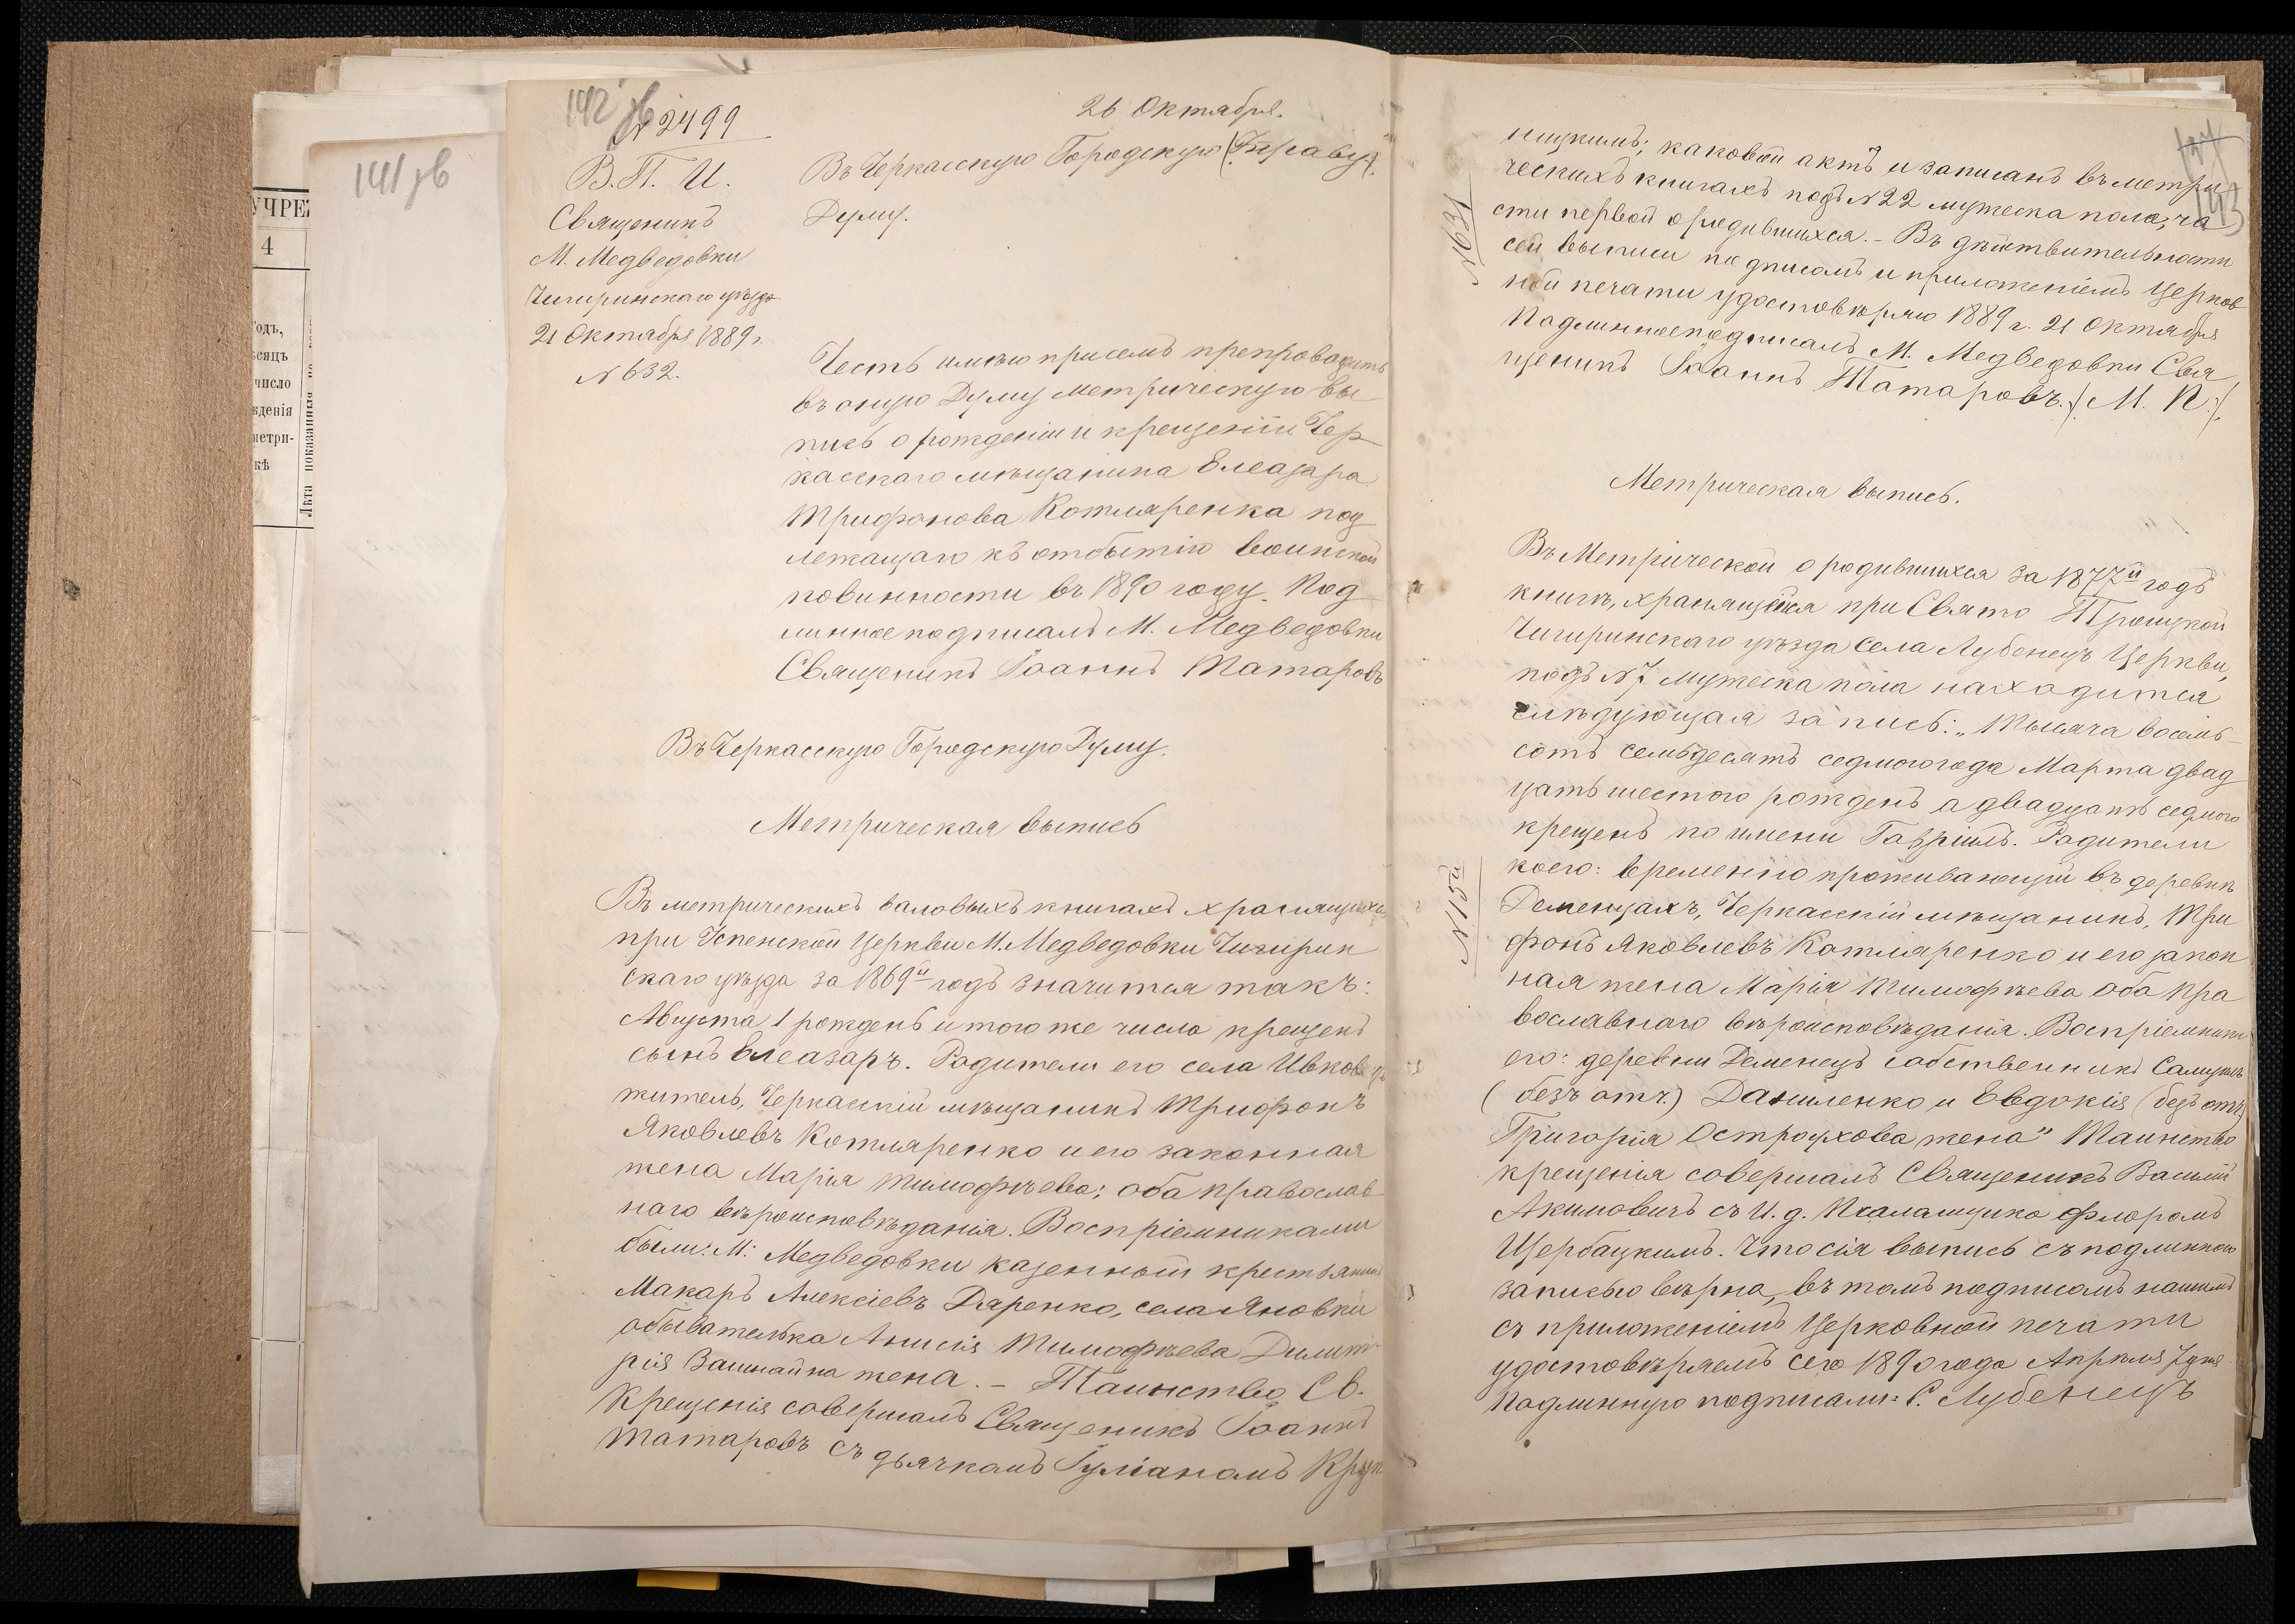 УЧРЕ
4
одъ,
сяцъ
число
жденія
метри-
кѣ
Лѣта показанныя по
141 зв
142 зв
№ 2499
26 Октября.
В. П. И.
Священикъ
М. Медведовки
Чигиринскаго уѣзда
21 Октября 1889 г.
№ 632.
Въ Черкасскую Городскую (Управу).
Думу.
Честь имѣю при семъ препроводить
въ оную Думу метрическую вы
пись о рожденіи и крещеніи Чер
касскаго мѣщанина Елеазара
Трифонова Котляренка под
лежащаго къ отбытію воинской
повинности въ 1890 году. Под
линное подписалъ М. Медведовки
Священикъ Іоаннъ Татаровъ
Въ Черкасскую Городскую Думу
Метрическая выпись
Въ метрическихъ валовыхъ книгахъ хранящихся
при Успенской Церкви М. Медведовки Чигирин
скаго уѣзда за 1869й годъ значится такъ:
Августа 1 рожденъ и того же числа крещенъ
сынъ Елеазаръ. Родители его села Ивковецъ
житель, Черкасскій мѣщанинъ Трифонъ
Яковлевъ Котляренко и его законная
жена Марія Тимофѣева; оба православ
наго вѣроисповѣданія. Воспріемниками
были: М: Медведовки казенный крестьянинъ
Макаръ Алексіевъ Даренко, села Яновки
обывателька Анисія Тимофѣева Димит
рія жена. – Таинство Св.
Крещенія совершалъ Священикъ Іоаннъ
Татаровъ съ дьячкомъ Іуліаномъ Круп
143
ницкимъ; каковой актъ и записанъ въ метри
ческихъ книгахъ подъ № 22 мужеска пола, ча
сти первой о родившихся. – Въ дѣйствительности
сей выписи подписомъ и приложеніемъ Церков
ной печати удостовѣряю 1889 г. 21 Октября
Подлинное подписалъ М. Медведовки Свя
щеникъ Іоаннъ Татаровъ. /М. П./
Метрическая выпись.
Въ Метрической о родившихся за 1877й годъ
книгѣ, хранящейся при Свято Троицкой
Чигиринскаго уѣзда села Лубенецъ Церкви,
подъ № 7 мужеска пола находится
слѣдующая запись: „Тысяча восемь
сотъ семьдесятъ седмого года Марта двад
цать шестого рожденъ а двадцать седмого
крещенъ по имени Гавріилъ. Родители
коего: временно проживающій въ деревнѣ
Деменцахъ, Черкасскій мѣщанинъ, Три
фонъ Яковлевъ Котляренко и его закон
ная жена Марія Тимофѣева оба пра
вославнаго вѣроисповѣданія. Воспріемники
его: деревни Деменецъ собственникъ Самуилъ
(безъ отч.) Даниленко и Евдокія (безъ отч.)
Григорія Остроухова жена“ Таинство
крещенія совершалъ Священикъ Василій
Акимовичъ съ И. д. Псаломщика Флоромъ
Щербацкимъ. Что сія выпись съ подлинною
записью вѣрна, въ томъ подписомъ нашимъ
съ приложеніемъ Церковной печати
удостовѣряемъ сего 1890 года Апрѣля 7 дня
Подлинную подписали: С. Лубенецъ